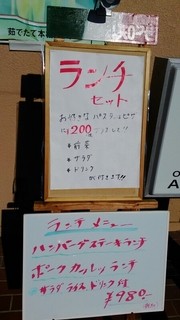 茹でたて
ランチ
セット
お好きなパスタ・ピザ
に200
*前菜
*サラダ
*ドリンク
が付きます!!
ランチメニュー
ハンバーグステーキランチ
ポークカツレツランチ
サラダ ライス ドリンク付
¥980